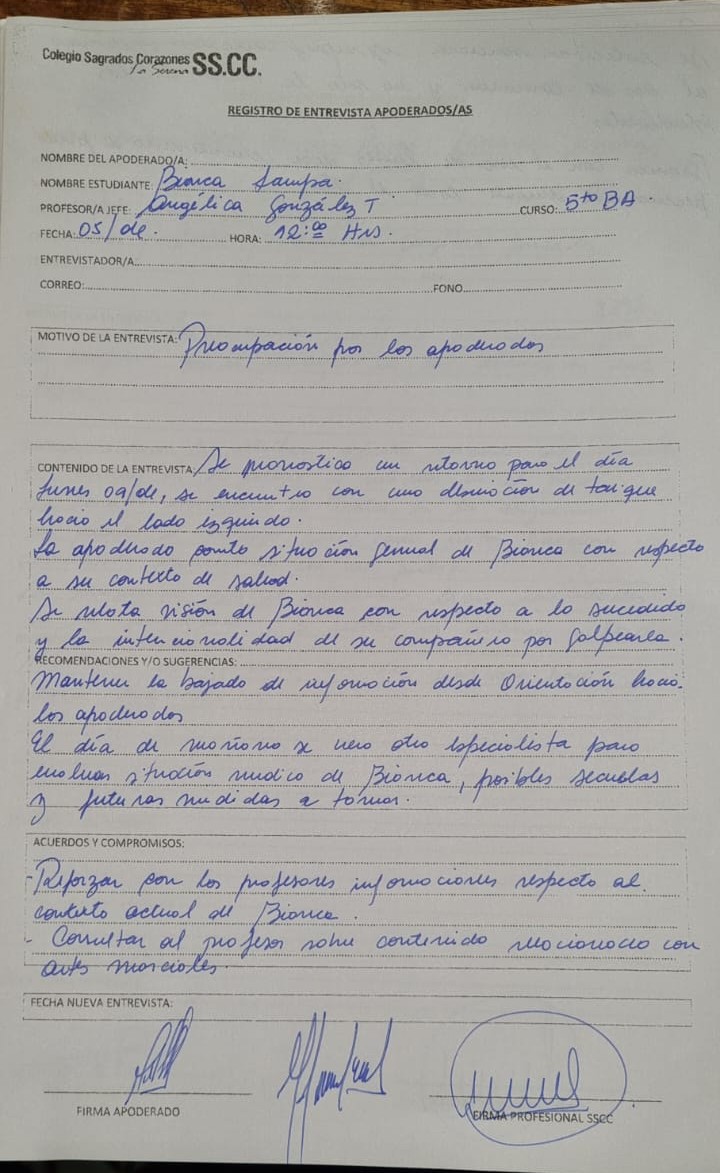 Colegio Sagrados Corazones
La Serena SS.CC.
REGISTRO DE ENTREVISTA APODERADOS/AS
NOMBRE DEL APODERADO/A:
NOMBRE ESTUDIANTE: Bianca
PROFESOR/A JEFE: Angélica González T CURSO: 5to BA.
FECHA: 05/de. HORA: 12:00 Hrs.
ENTREVISTADOR/A
CORREO: FONO
MOTIVO DE LA ENTREVISTA: Preocupación por los apoderados
CONTENIDO DE LA ENTREVISTA: Se pronostico un retorno para el día
lunes 09/de, se encuentra con una desviación de
hacia el lado izquierdo.
La apoderado situación general de Bianca con respecto
a su contexto de salud.
Se relata visión de Bianca con respecto a lo sucedido
y la intencionalidad de su compañero por golpearla.
RECOMENDACIONES Y/O SUGERENCIAS:
Mantener la bajada de información desde Orientación hacia
los apoderados
El día de mañana se vera otro especialista para
evaluar situación medica de Bianca, posibles secuelas
y futuras medidas a tomar.
ACUERDOS Y COMPROMISOS:
- Reforzar con los profesores informaciones respecto al
contexto actual de Bianca.
- Consultar al profesor sobre contenido relacionado con
artes marciales.
FECHA NUEVA ENTREVISTA:
FIRMA APODERADO
FIRMA PROFESIONAL SSCC